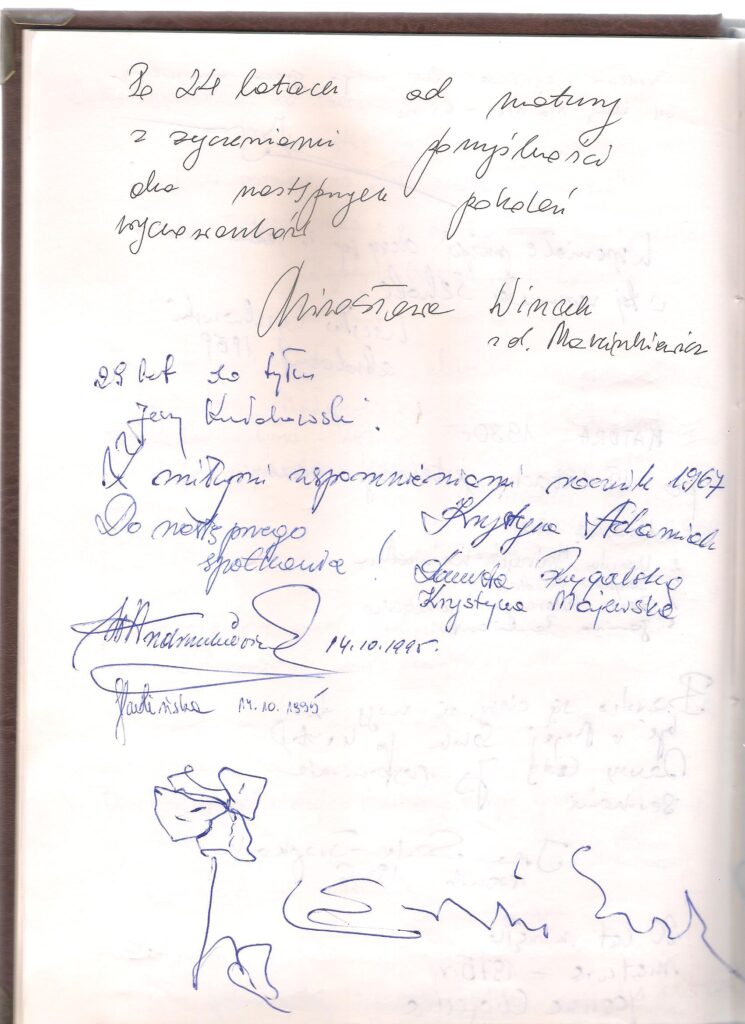 Po 24 latach od matury
z życzeniami pomyślności
dla następnych pokoleń
wychowanków
Mirosława Wincek
z d. Marcinkiewicz
29 lat do tyłu
Jerzy
Z miłymi wspomnieniami rocznik 1967
Do następnego
spotkania!
Krystyna Adamiak
Danuta Zygalska
Krystyna Majewska
14.10.1995.
14.10.1995